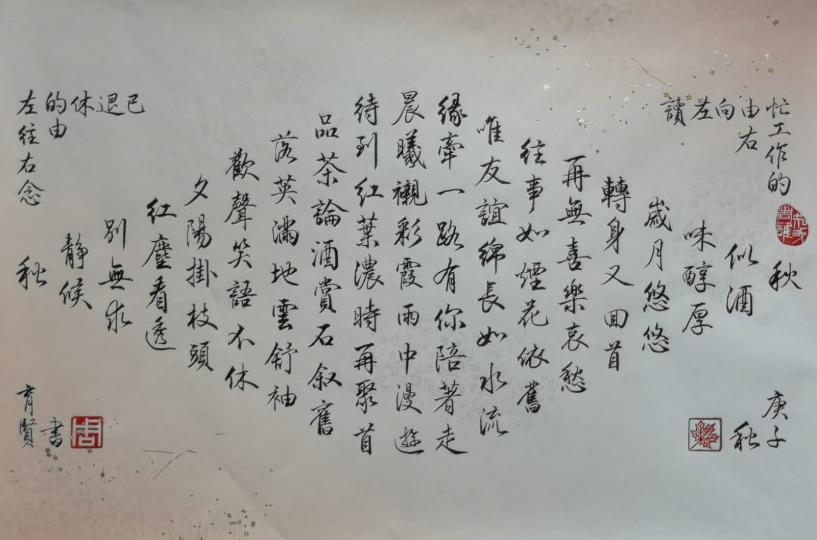 忙工作的
由右
向左
讀
秋
似酒
味醇厚
歲月悠悠
轉身又回首
再無喜樂哀愁
往事如煙花依舊
唯友誼綿長如水流
緣牽一路有你陪著走
晨曦襯彩霞雨中漫遊
待到紅葉濃時再聚首
品茶論酒賞石叙舊
落英滿地雲舒袖
歡聲笑語不休
夕陽掛枝頭
紅塵看透
別無求
靜候
秋
已退休的由
左往右念
庚子
秋
育賢
書